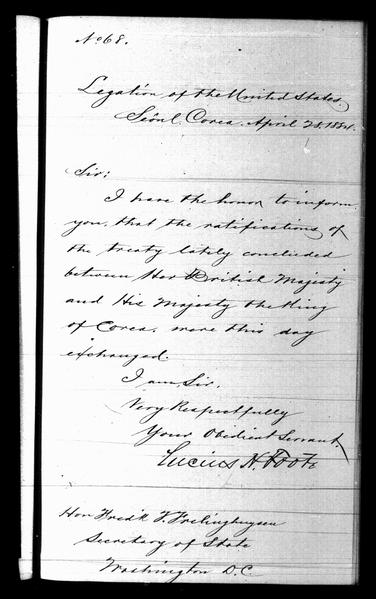 No 68.
Legation of the United States.
Seoul. Corea. April 28. 1884.
Sir:
I have the honor to inform
you, that the ratifications of
the treaty lately concluded
between Her British Majesty
and His Majesty the King
of Corea, were this day
exchanged.
I am, Sir.
Very Respectfully
Your Obedient Servant.
Lucius H. Foote
Hon Fredk T. Frelinghuysen
Secretary of State
Washington D.C.